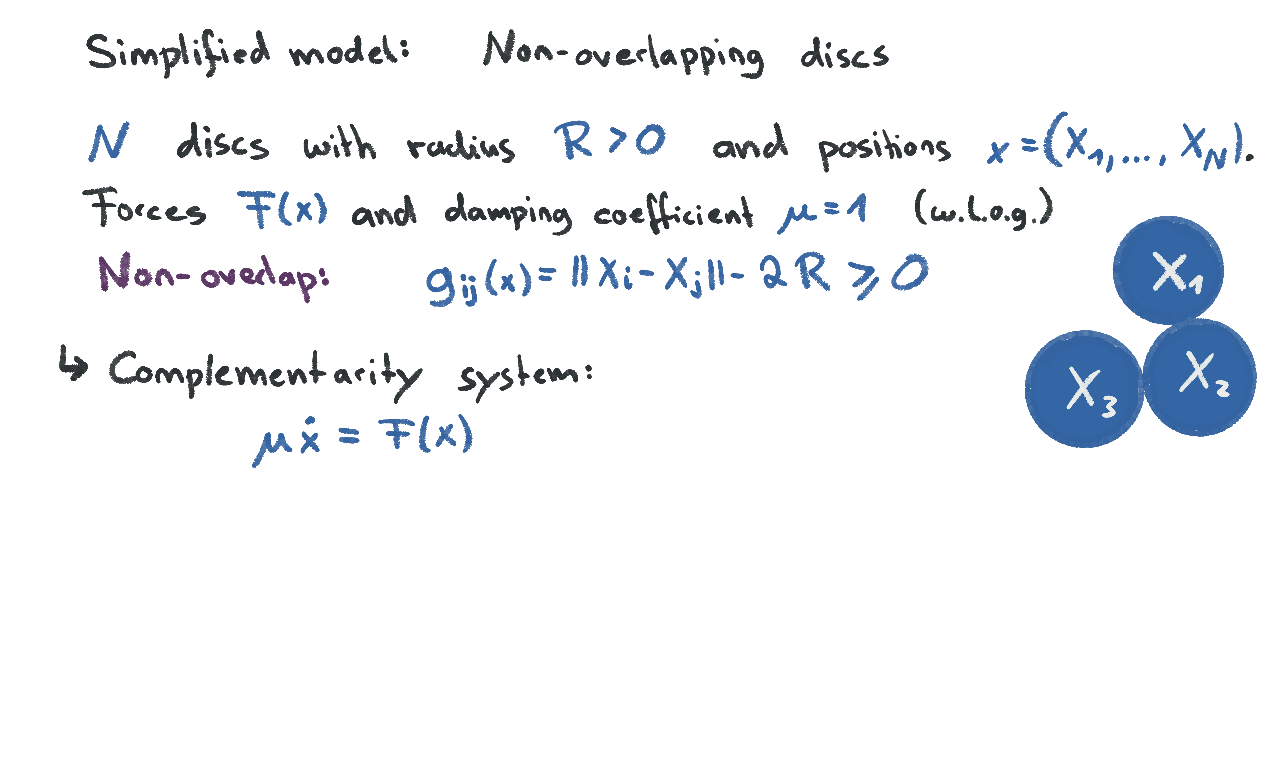 Simplified model: Non-overlapping discs
N discs with radius R > 0 and positions x = (X₁, ..., X_N).
Forces F(x) and damping coefficient μ = 1 (w.l.o.g.)
Non-overlap: g_ij(x) = ||X_i - X_j|| - 2R ≥ 0
X₁
X₃ X₂
↳ Complementarity system:
μẋ = F(x)